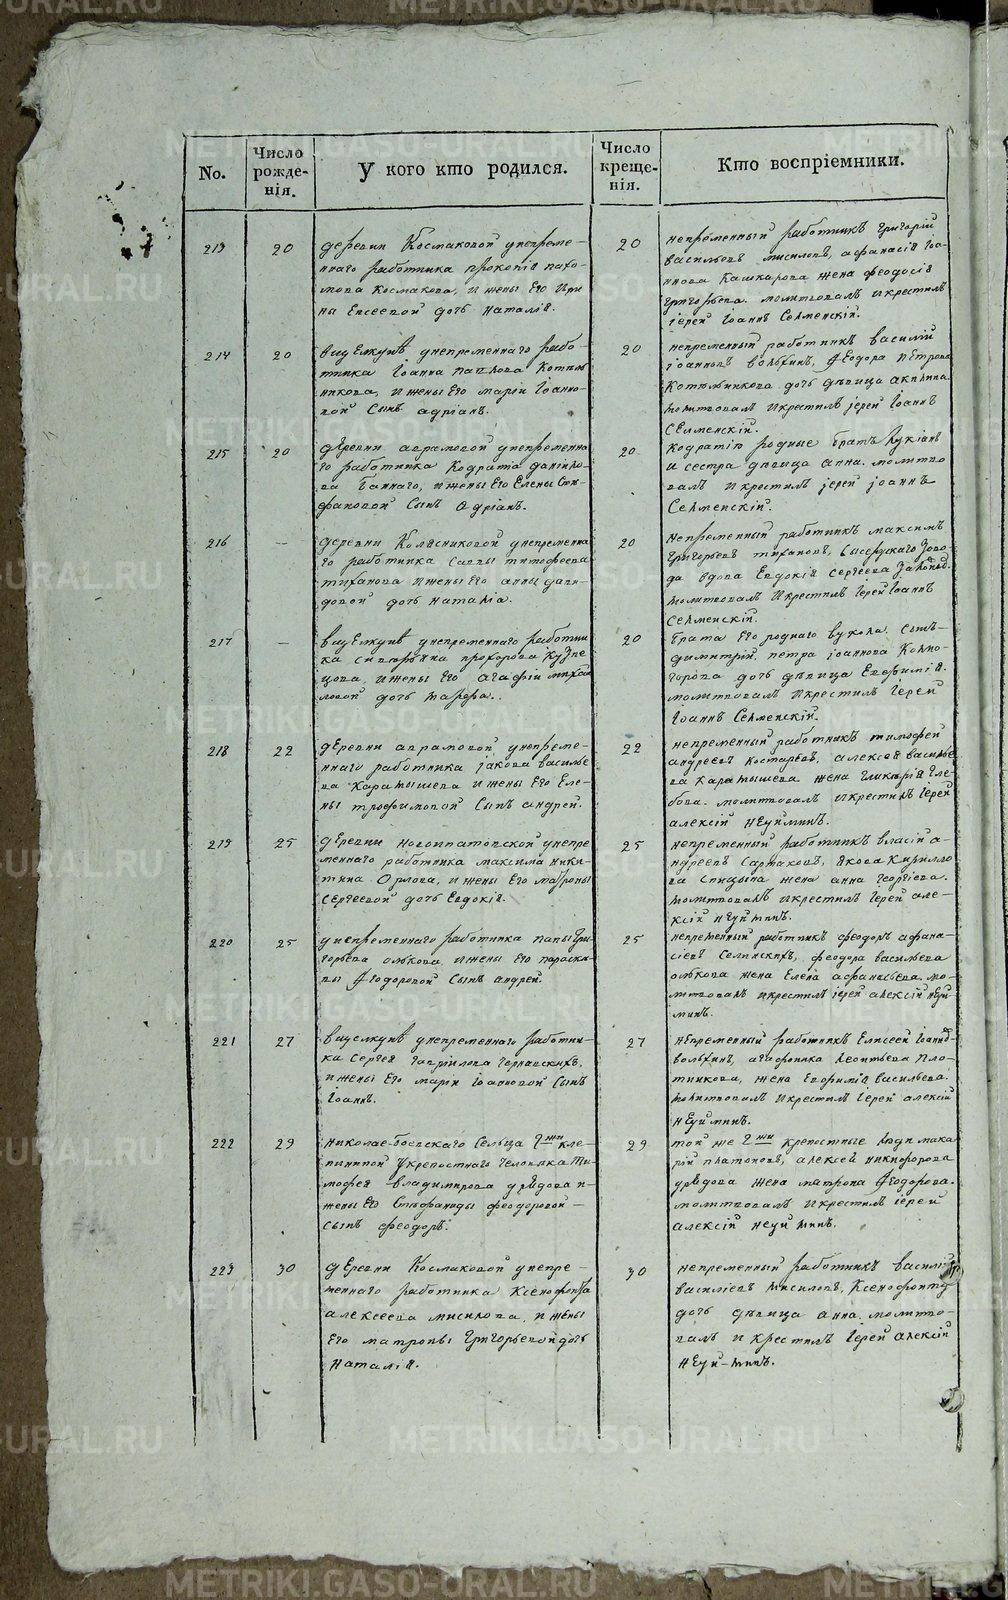 No.
Число рожде-
нія.
У кого кто родился.
Число креще-
нія.
Кто воспріемники.
213 20
деревни Космаковой унепреме-
ннаго работника прокопія пахо-
мова Космакова, и жены Его Ири
ны Евсеевой дочь наталія.
20
непременный работникъ григорій
васильевъ мисиловъ, афанасія Іоа-
ннова Кашкарова жена феодосія
григорьева. молитвовалъ и крестилъ
іерей Іоаннъ Селменскій.
214 20
унепременнаго рабо-
тника Іоанна павлова Котель
никова, и жены Его маріи Іоанно-
вой Сынъ адріанъ.
20
непременный работникъ василій
іоанновъ вольхинъ, Феодора петрова
Котельникова дочь девица акилина.
молитвовалъ и крестилъ іерей Іоаннъ
Селменскій.
215 20
деревни аврамовой унепременна
го работника Кодрата данило-
ва баннаго, и жены Его Елены Сте-
фановой Сынъ Одріанъ.
20
Кодратію родные братъ Лукіанъ
и сестра девица анна. молитво
валъ и крестилъ іерей іоаннъ
Селменскій.
216 —
деревни Колясниковой унепременна
го работника Саввы тимофеева
тиханова и жены Его анны дави-
довой дочь наталіа.
20
Непременный работникъ максимъ
григорьевъ тихановъ, Заво-
да вдова Евдокія сергеева
молитвовалъ и крестилъ Іерей Іоаннъ
Селменскій.
217 —
унепременнаго работни
ка прохорова Кузне
цова, и жены Его агафіи михай
ловой дочь
20
брата Его роднаго вукола сынъ-
димитрій, петра іоаннова
дочь девица Евфимія.
молитвовалъ и крестилъ Іерей
Іоаннъ Селменскій.
218 22
деревни аврамовой унепреме-
ннаго работника іакова василье
ва Каратышева и жены Его Еле-
ны трофимовой Сынъ андрей.
22
непременный работникъ тимофей
андреевъ Костаревъ, алексея василье
ва Каратышева жена гликерія гле-
бова. молитвовалъ и крестилъ Іерей
алексій неуйминъ.
219 25
деревни новоипатовской унепре
меннаго работника максима ники-
тина Орлова, и жены Его матроны
Сергеевой дочь Евдокія.
25
непременный работникъ власій а-
ндреевъ Сартаковъ, Якова Кирилло
ва Спицына жена анна георгіева.
молитвовалъ и крестилъ Іерей але-
ксій неуйминъ.
220 25
унепременнаго работника григо-
горьева олькова и жены Его параске-
вы Феодоровой Сынъ андрей.
25
непременный работникъ феодоръ афана-
сіевъ Селинскихъ, феодора васильева
олькова жена Елена афанасьева. мо-
литвовалъ и крестилъ іерей алексій неуй-
минъ.
221 27
унепременнаго работни-
ка Сергея гавріилова Чернавскихъ,
и жены Его маріи Іоанновой Сынъ
Іоаннъ.
27
непременный работникъ Елисей Іоаннов
вольхинъ, агафоника леонтьева пло-
тникова, жена Евфимія васильева.
молитвовалъ и крестилъ Іерей алексій
неуйминъ.
222 29
николае-боевскаго Сельца Г-жи кле-
пининой Укрепостнаго человека ти-
мофея владимирова и
жены Его феодоровой-
сынъ феодоръ.
29
той же Г-жи крепостные люди мака
рій платоновъ, алексея никифорова
жена матрона Феодорова.
молитвовалъ и крестилъ Іерей
алексій неуйминъ.
223 30
деревни Космаковой унепре-
меннаго работника Ксенофонта
алексеева мисилова, и жены
Его матроны григорьевой дочь
наталія.
30
непременный работникъ василій
васильевъ мисиловъ, Ксенофонта
дочь девица анна. молитво-
валъ и крестилъ Іерей алексій
неуй-минъ.
METRIKI.GASO-URAL.RU